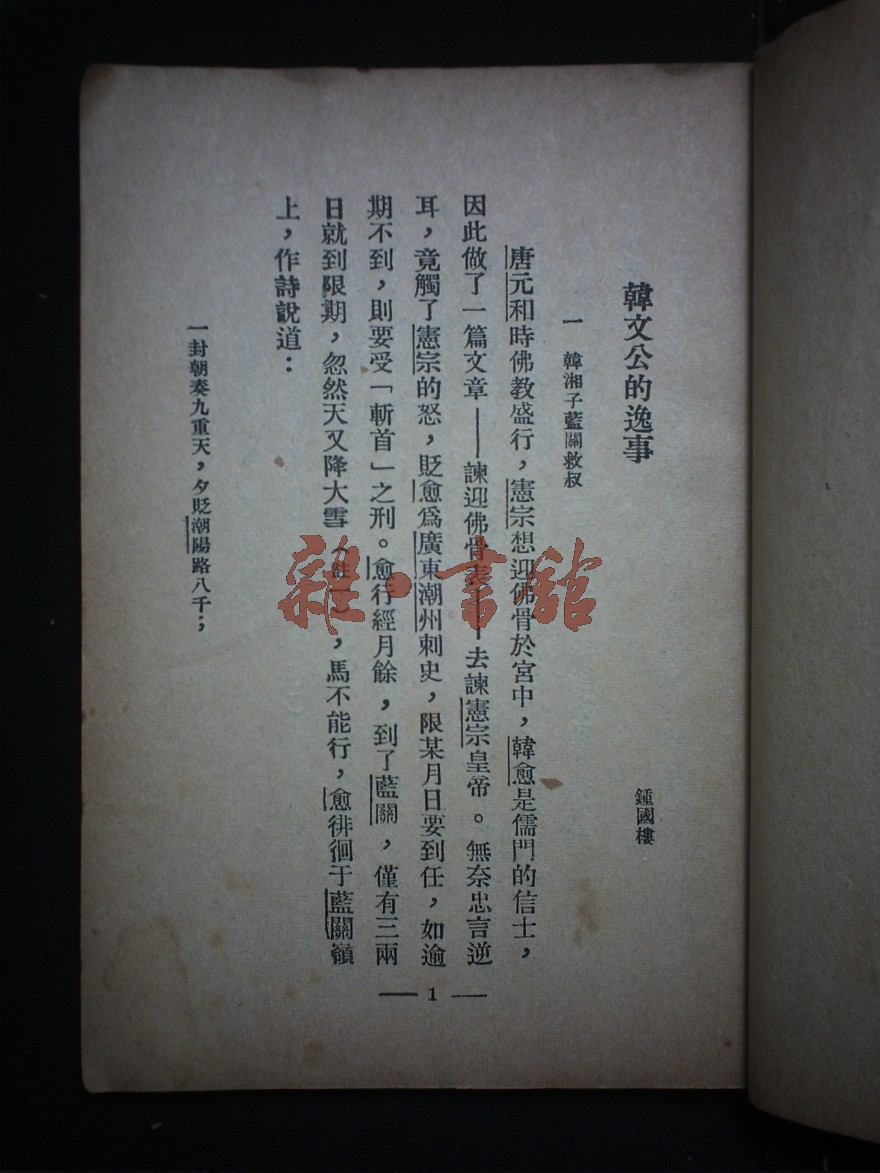 韓文公的逸事
鍾國樓
一 韓湘子藍關救叔
唐元和時佛教盛行，憲宗想迎佛骨於宮中，韓愈是儒門的信士，
因此做了一篇文章——諫迎佛骨表——去諫憲宗皇帝。無奈忠言逆
耳，竟觸了憲宗的怒，貶愈爲廣東潮州刺史，限某月日要到任，如逾
期不到，則要受「斬首」之刑。愈行經月餘，到了藍關，僅有三兩
日就到限期，忽然天又降大雪（註一），馬不能行，愈徘徊于藍關嶺
上，作詩說道：
一封朝奏九重天，夕貶潮陽路八千；
— 1 —
雜·書館